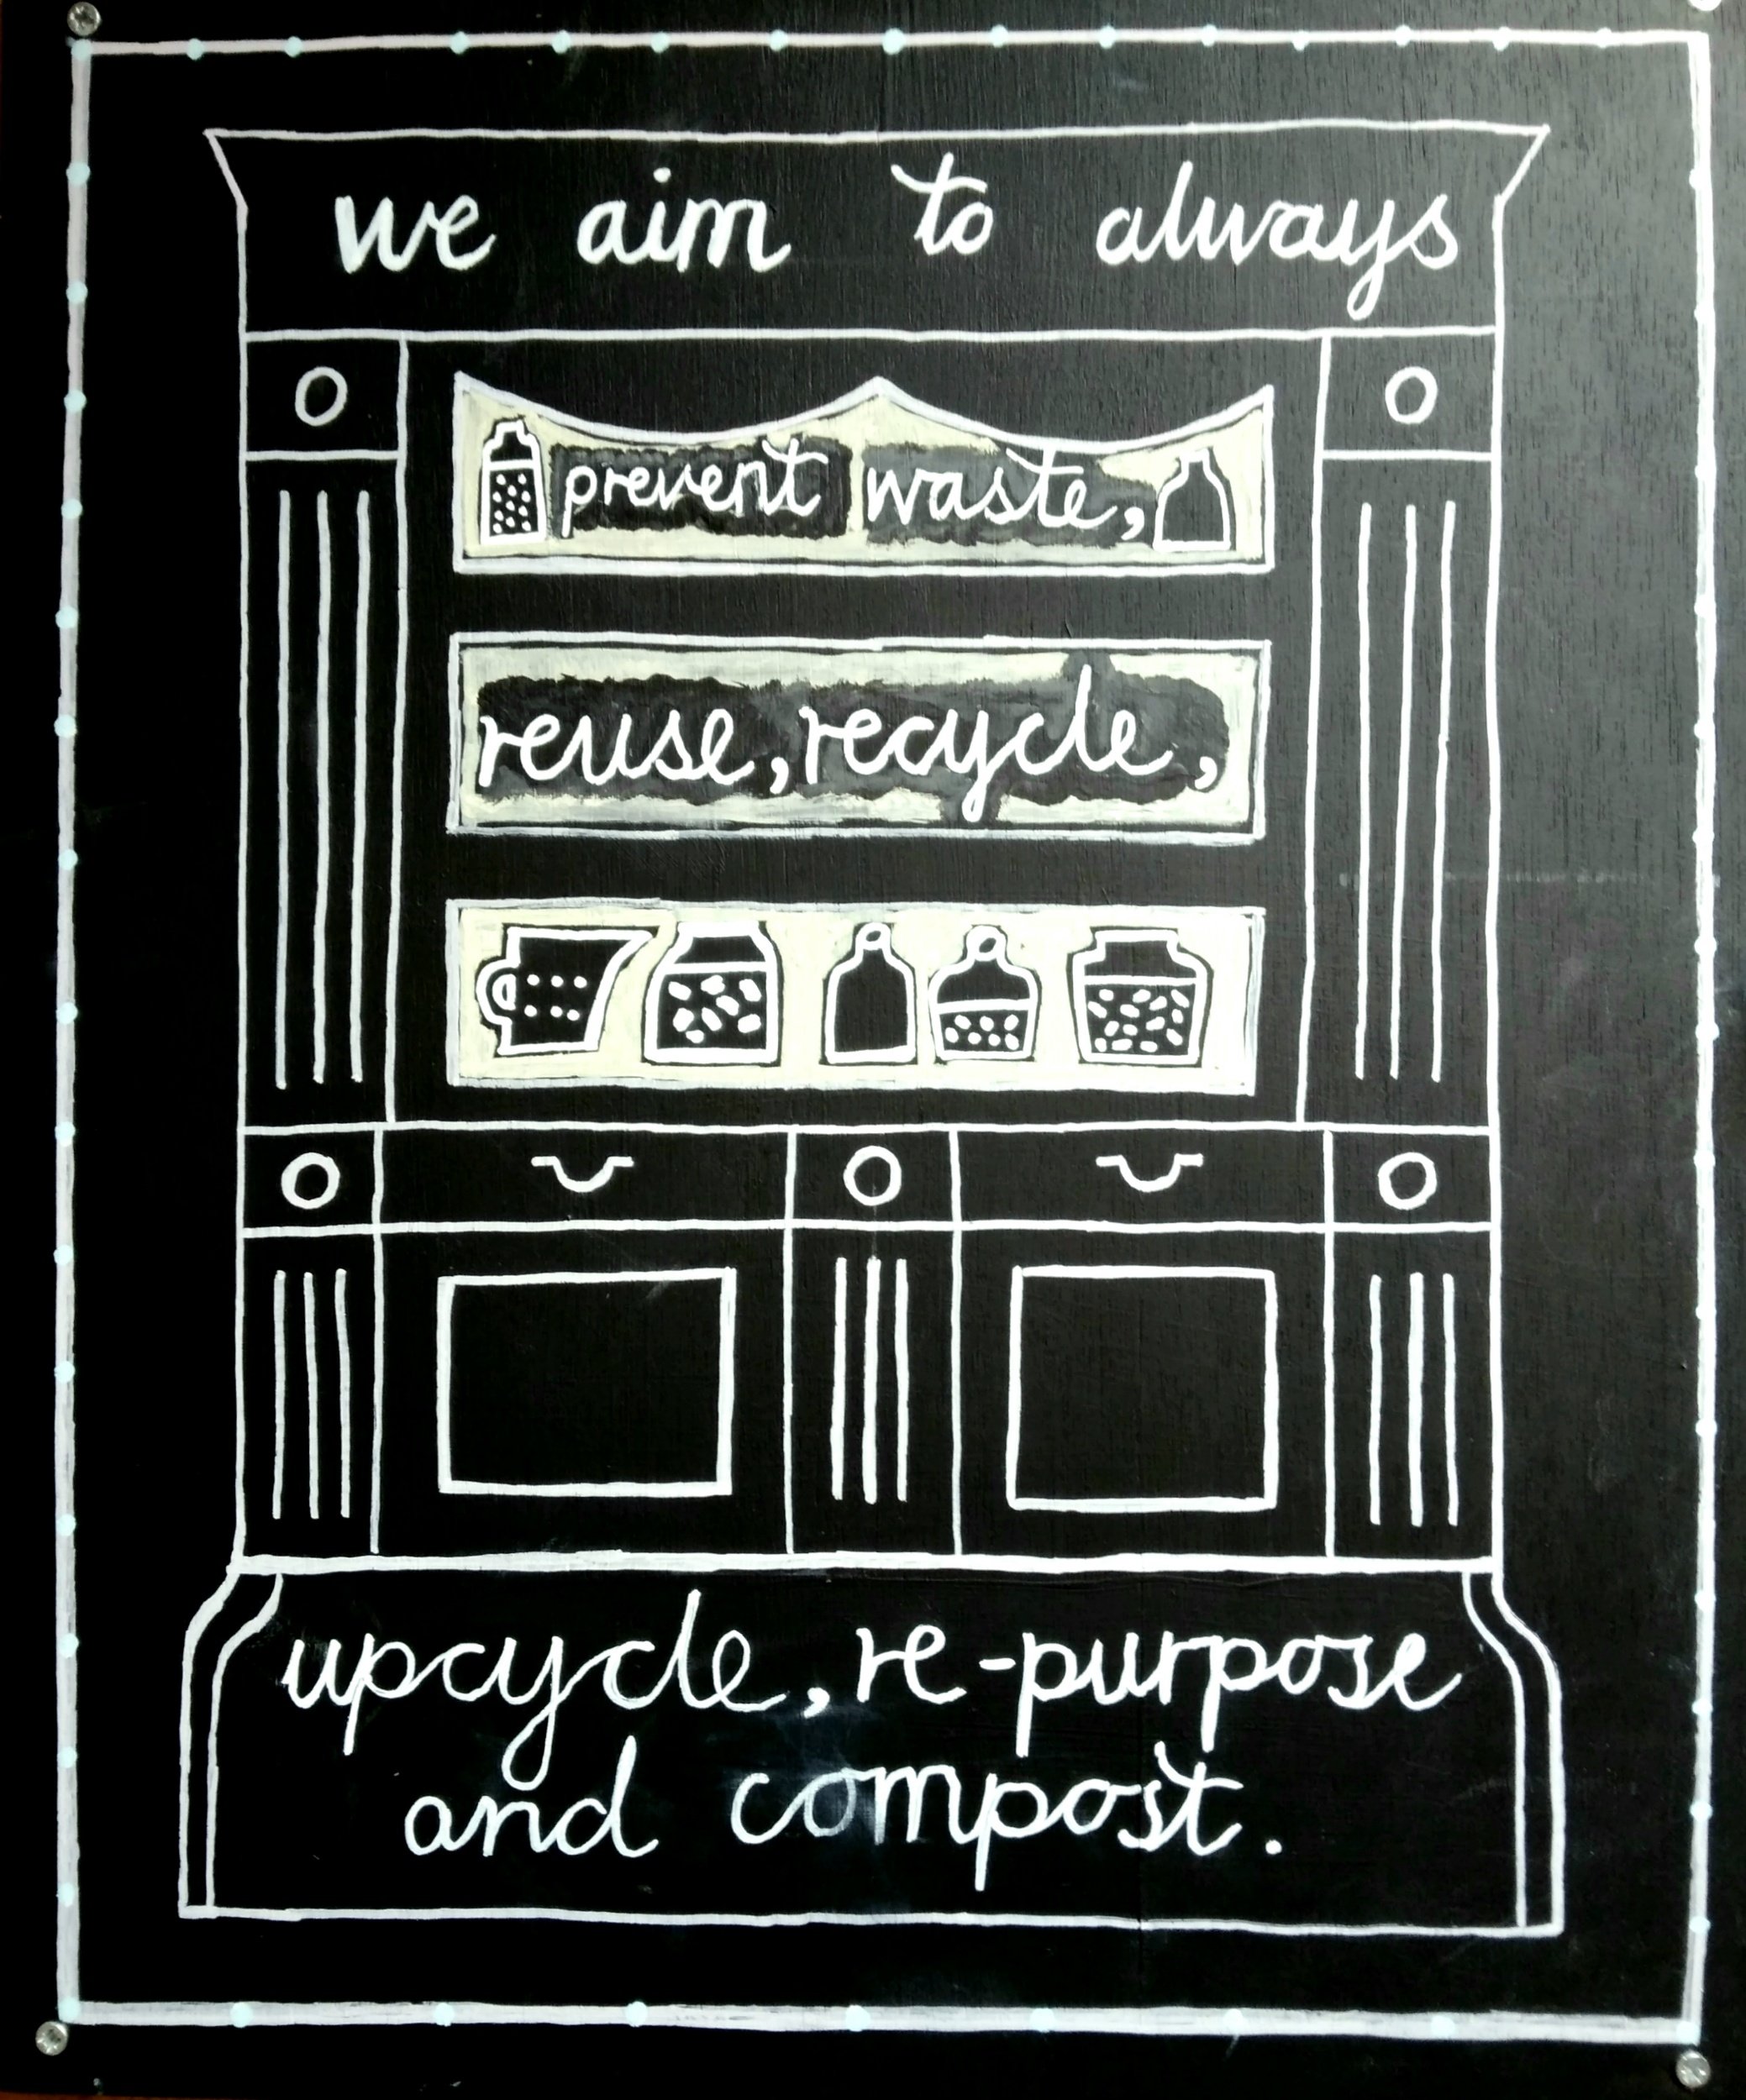 we aim to always
prevent waste,
reuse, recycle,
upcycle, re-purpose
and compost.